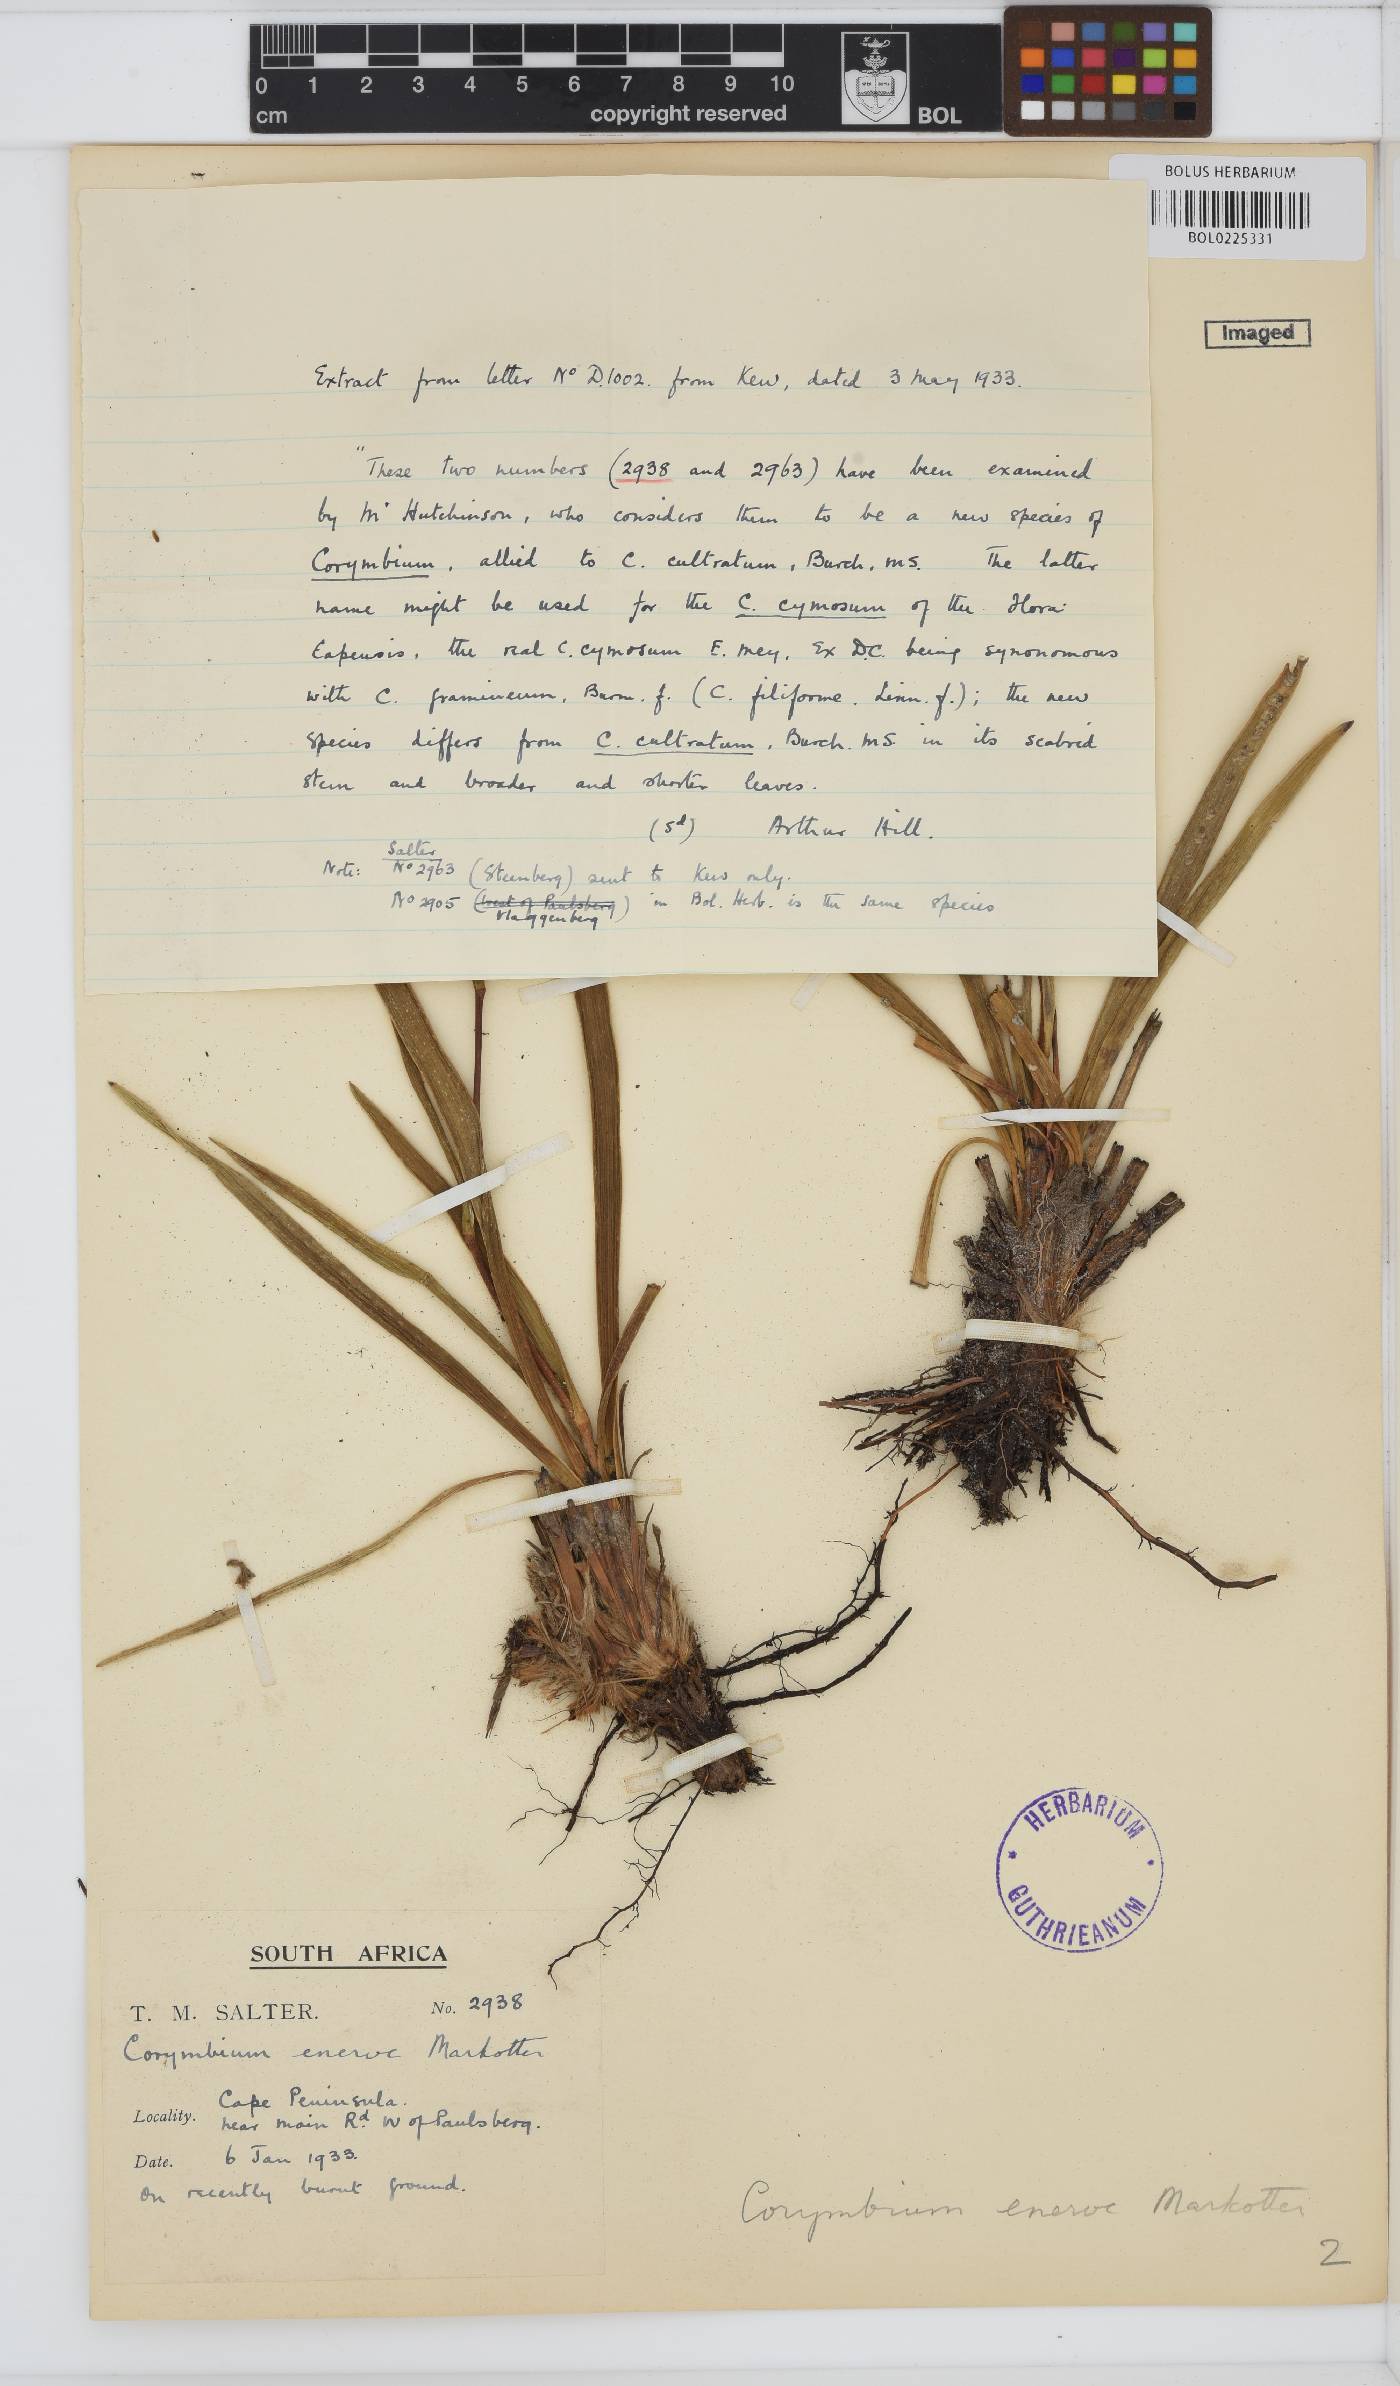 0 1 2 3 4 5 6 7 8 9 10
cm
copyright reserved
BOL
BOLUS HERBARIUM
BOL0225331
Imaged
Extract from letter No D.1002. from Kew, dated 3 May 1933.
"These two numbers (2938 and 2963) have been examined
by Mr Hutchinson, who considers them to be a new species of
Corymbium, allied to C. cultratum, Burch. MS. The latter
name might be used for the C. cymosum of the Flora
Capensis, the real C. cymosum E. Mey. Ex D.C. being synonomous
with C. gramineum, Burm. f. (C. filiforme. Linn. f.); the new
species differs from C. cultratum, Burch. MS. in its scabrid
stem and broader and shorter leaves.
(Sd) Arthur Hill.
Salter
Note: No 2963 (Steenberg) sent to Kew only.
No 2905 (West of Paulsberg) in Bol. Herb. is the same species
Vlaggenberg
HERBARIUM
GUTHRIEANUM
SOUTH AFRICA
T. M. SALTER. No. 2938
Corymbium enerve Markotter
Locality. Cape Peninsula.
near main Rd W of Paulsberg.
Date. 6 Jan 1933.
On recently burnt ground.
Corymbium enerve Markotter
2